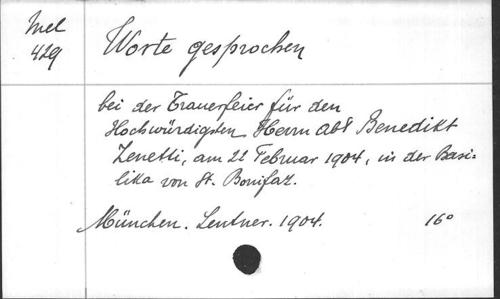 Mel
429
Worte gesprochen
bei der Trauerfeier für den
Hochwürdigsten Herrn Abt Benedikt
Zenetti, am 21 Februar 1904, in der Basi-
lika von St. Bonifaz.
München. Lentner. 1904. 16°